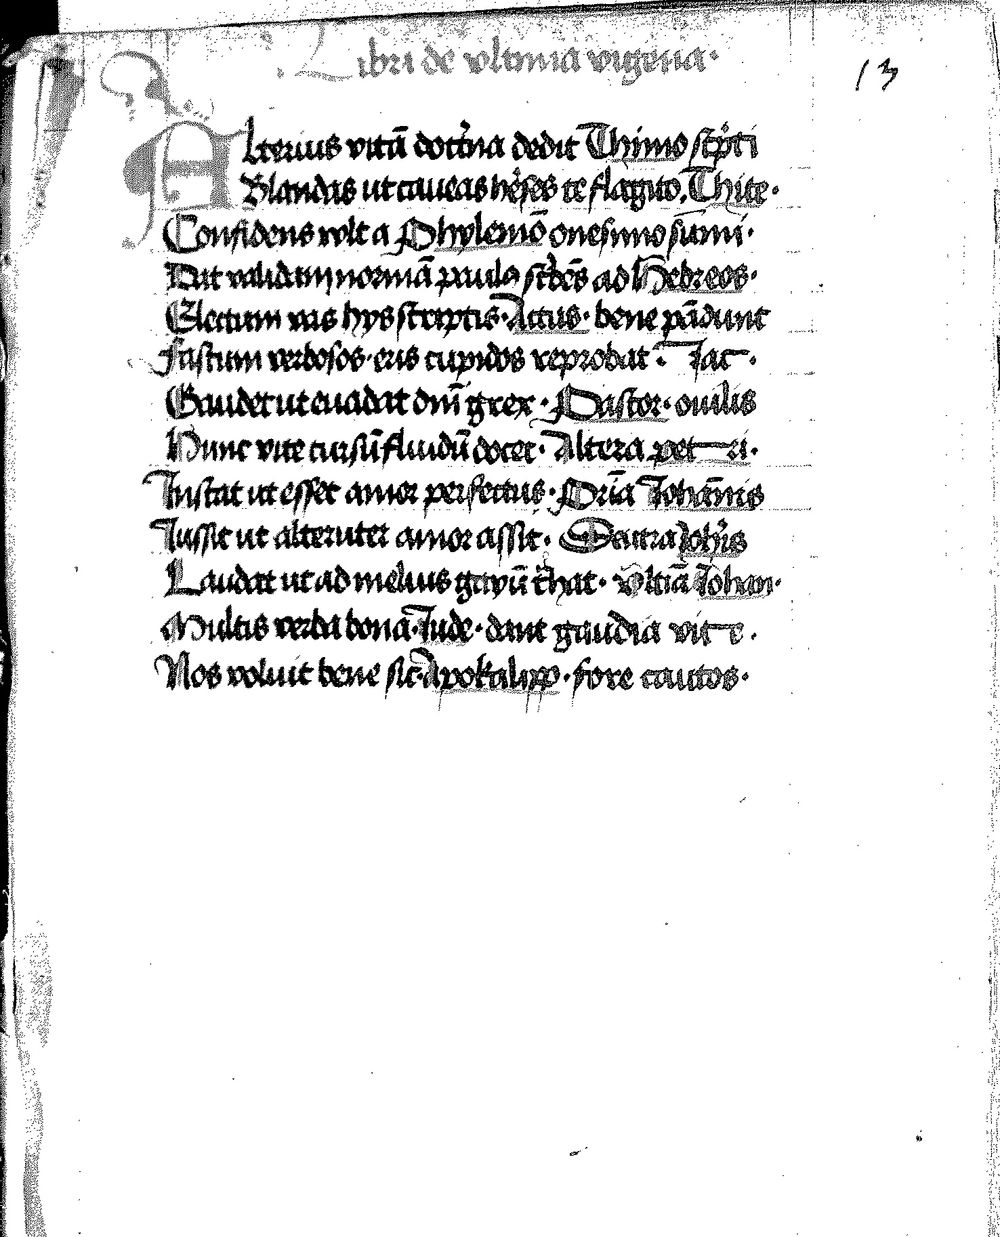 Libri de vltima vigena·
13
Alterius vitā dotͥna dedit Thimo scͥpti
Blandas ut caueas heͬses te flagito. Thite·
Confidens volt a Phylemō onesimo sumi·
Dat validam normā paulꝯ scͥbēs ad Hebreos·
Electum vas hys scriptis· Actus· bene pādunt
Fastum verbosos· eris cupidos reprobat· Jac·
Gaudet ut euadat dnī grex· Pastor· ouilis
Hunc vite cursū fluidū docet· Altera petri·
Instat ut esset amor perfectus· Prīa Johānis
Iussit ut alteruter amor assit· Secūda Johīs
Laudat ut ad melius gayū that· vltiā Johan·
Multis verba bona· Jude· dant gaudia vite·
Nos voluit bene sic· Apokalipp· fore cautos·